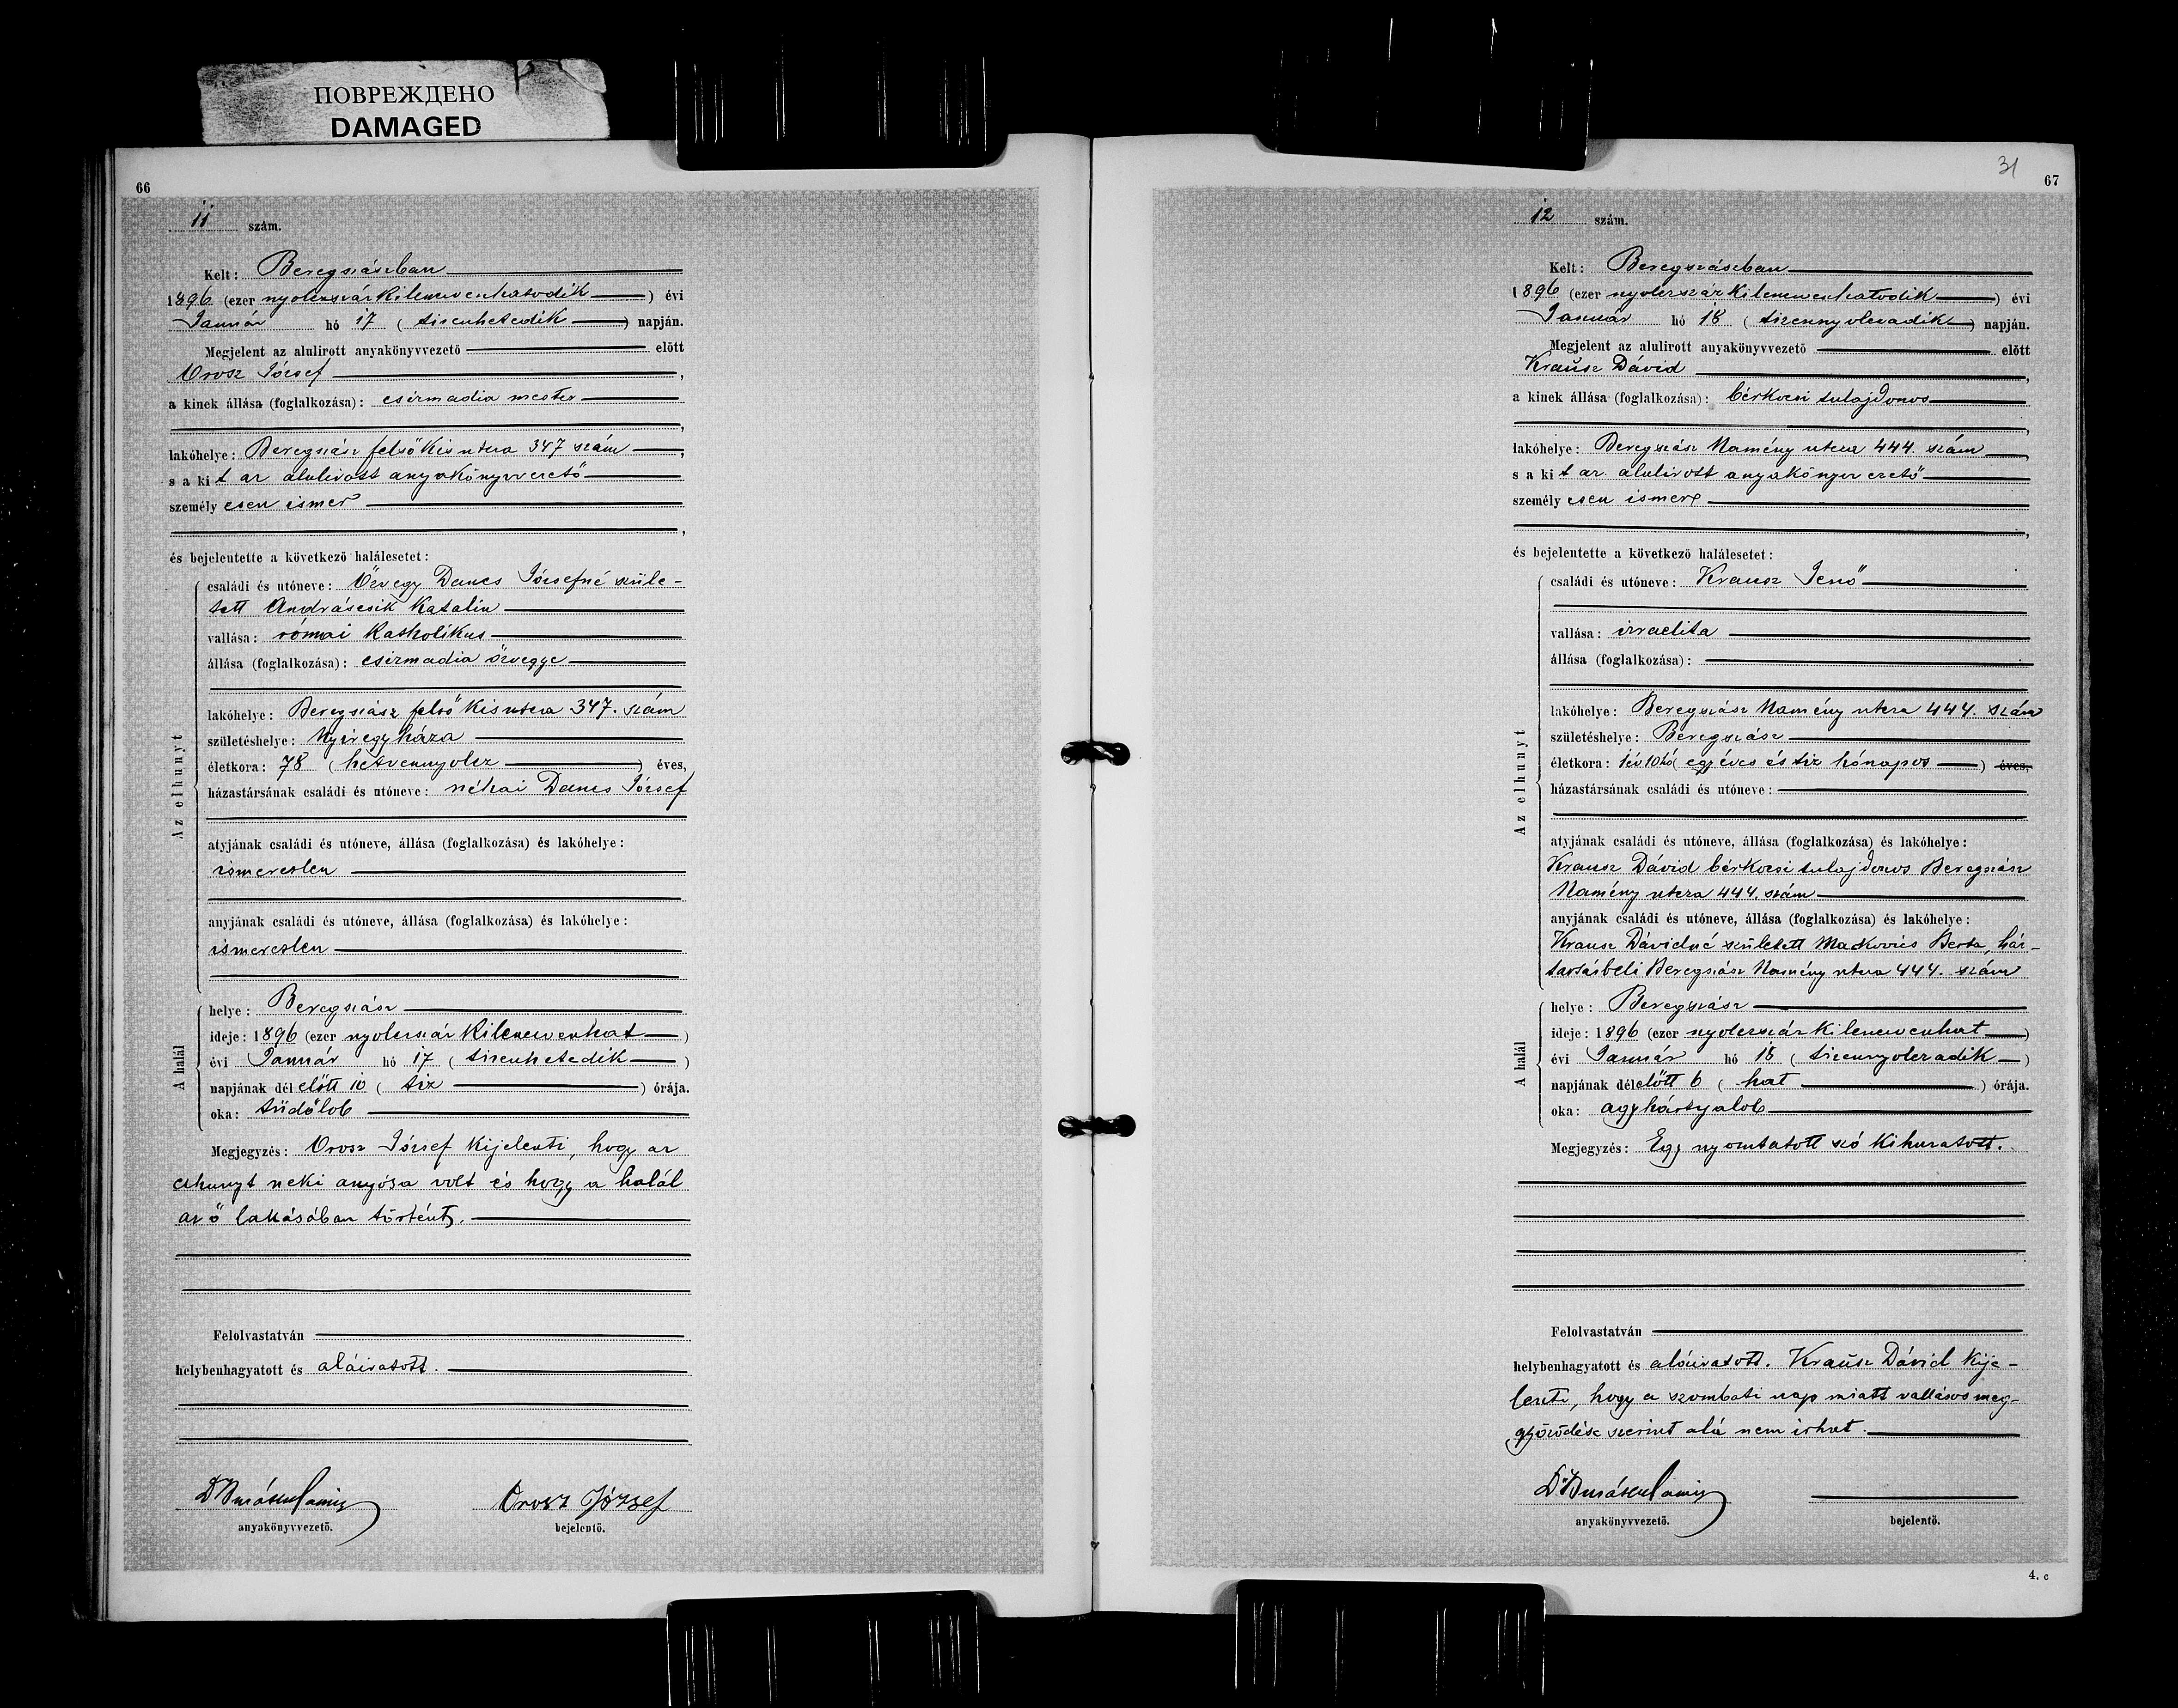 ПОВРЕЖДЕНО
DAMAGED
66
11 szám.
Kelt: Beregszászban
1896 (ezer nyolczszázkilenczvenhatodik) évi
Január hó 17 (tizenhetedik) napján.
Megjelent az alulirott anyakönyvvezető előtt
Orosz József,
a kinek állása (foglalkozása): csizmadia mester
,
lakóhelye: Beregszász felső Kis utcza 347 szám,
s a kit az alulirott anyakönyvvezető
személyesen ismer
,
és bejelentette a következő halálesetet:
Az elhunyt
családi és utóneve: Özvegy Dancs Józsefné szüle-
tett Andráscsik Katalin
vallása: római katholikus
állása (foglalkozása): csizmadia özvegye
lakóhelye: Beregszász felső Kis utcza 347. szám
születéshelye: Nyíregyháza
életkora: 78 (hetvennyolcz) éves,
házastársának családi és utóneve: néhai Dancs József
atyjának családi és utóneve, állása (foglalkozása) és lakóhelye:
ismeretlen
anyjának családi és utóneve, állása (foglalkozása) és lakóhelye:
ismeretlen
A halál
helye: Beregszász
ideje: 1896 (ezer nyolczszázkilenczvenhat)
évi Január hó 17 (tizenhetedik)
napjának délelőtt 10 (tiz) órája.
oka: tüdőlob
Megjegyzés: Orosz József kijelenti, hogy az
elhunyt neki anyósa volt és hogy a halál
az ő lakásában történt.
Felolvastatván
helybenhagyatott és aláiratott.
Orosz József
anyakönyvvezető.
bejelentő.
31
67
12 szám.
Kelt: Beregszászban
1896 (ezer nyolczszázkilenczvenhatodik) évi
Január hó 18 (tizennyolczadik) napján.
Megjelent az alulirott anyakönyvvezető előtt
Krausz Dávid,
a kinek állása (foglalkozása): bérkocsi tulajdonos
,
lakóhelye: Beregszász Namény utcza 444. szám,
s a kit az alulirott anyakönyvvezető
személyesen ismer
,
és bejelentette a következő halálesetet:
Az elhunyt
családi és utóneve: Krausz Jenő
vallása: izraelita
állása (foglalkozása):
lakóhelye: Beregszász Namény utcza 444. szám
születéshelye: Beregszász
életkora: 1 év 10 hó (egy éves és tiz hónapos) éves,
házastársának családi és utóneve:
atyjának családi és utóneve, állása (foglalkozása) és lakóhelye:
Krausz Dávid bérkocsi tulajdonos Beregszász
Namény utcza 444. szám
anyjának családi és utóneve, állása (foglalkozása) és lakóhelye:
Krausz Dávidné született Markovics Berta, ház-
tartásbeli Beregszász Namény utcza 444. szám
A halál
helye: Beregszász
ideje: 1896 (ezer nyolczszázkilenczvenhat)
évi Január hó 18 (tizennyolczadik)
napjának délelőtt 6 (hat) órája.
oka: agyhártyalob
Megjegyzés: Egy nyomtatott szó kihuzatott.
Felolvastatván
helybenhagyatott és aláiratott. Krausz Dávid kije-
lenti, hogy a szombati nap miatt vallásos meg-
győződése szerint alá nem irhat.
anyakönyvvezető.
bejelentő.
4. c